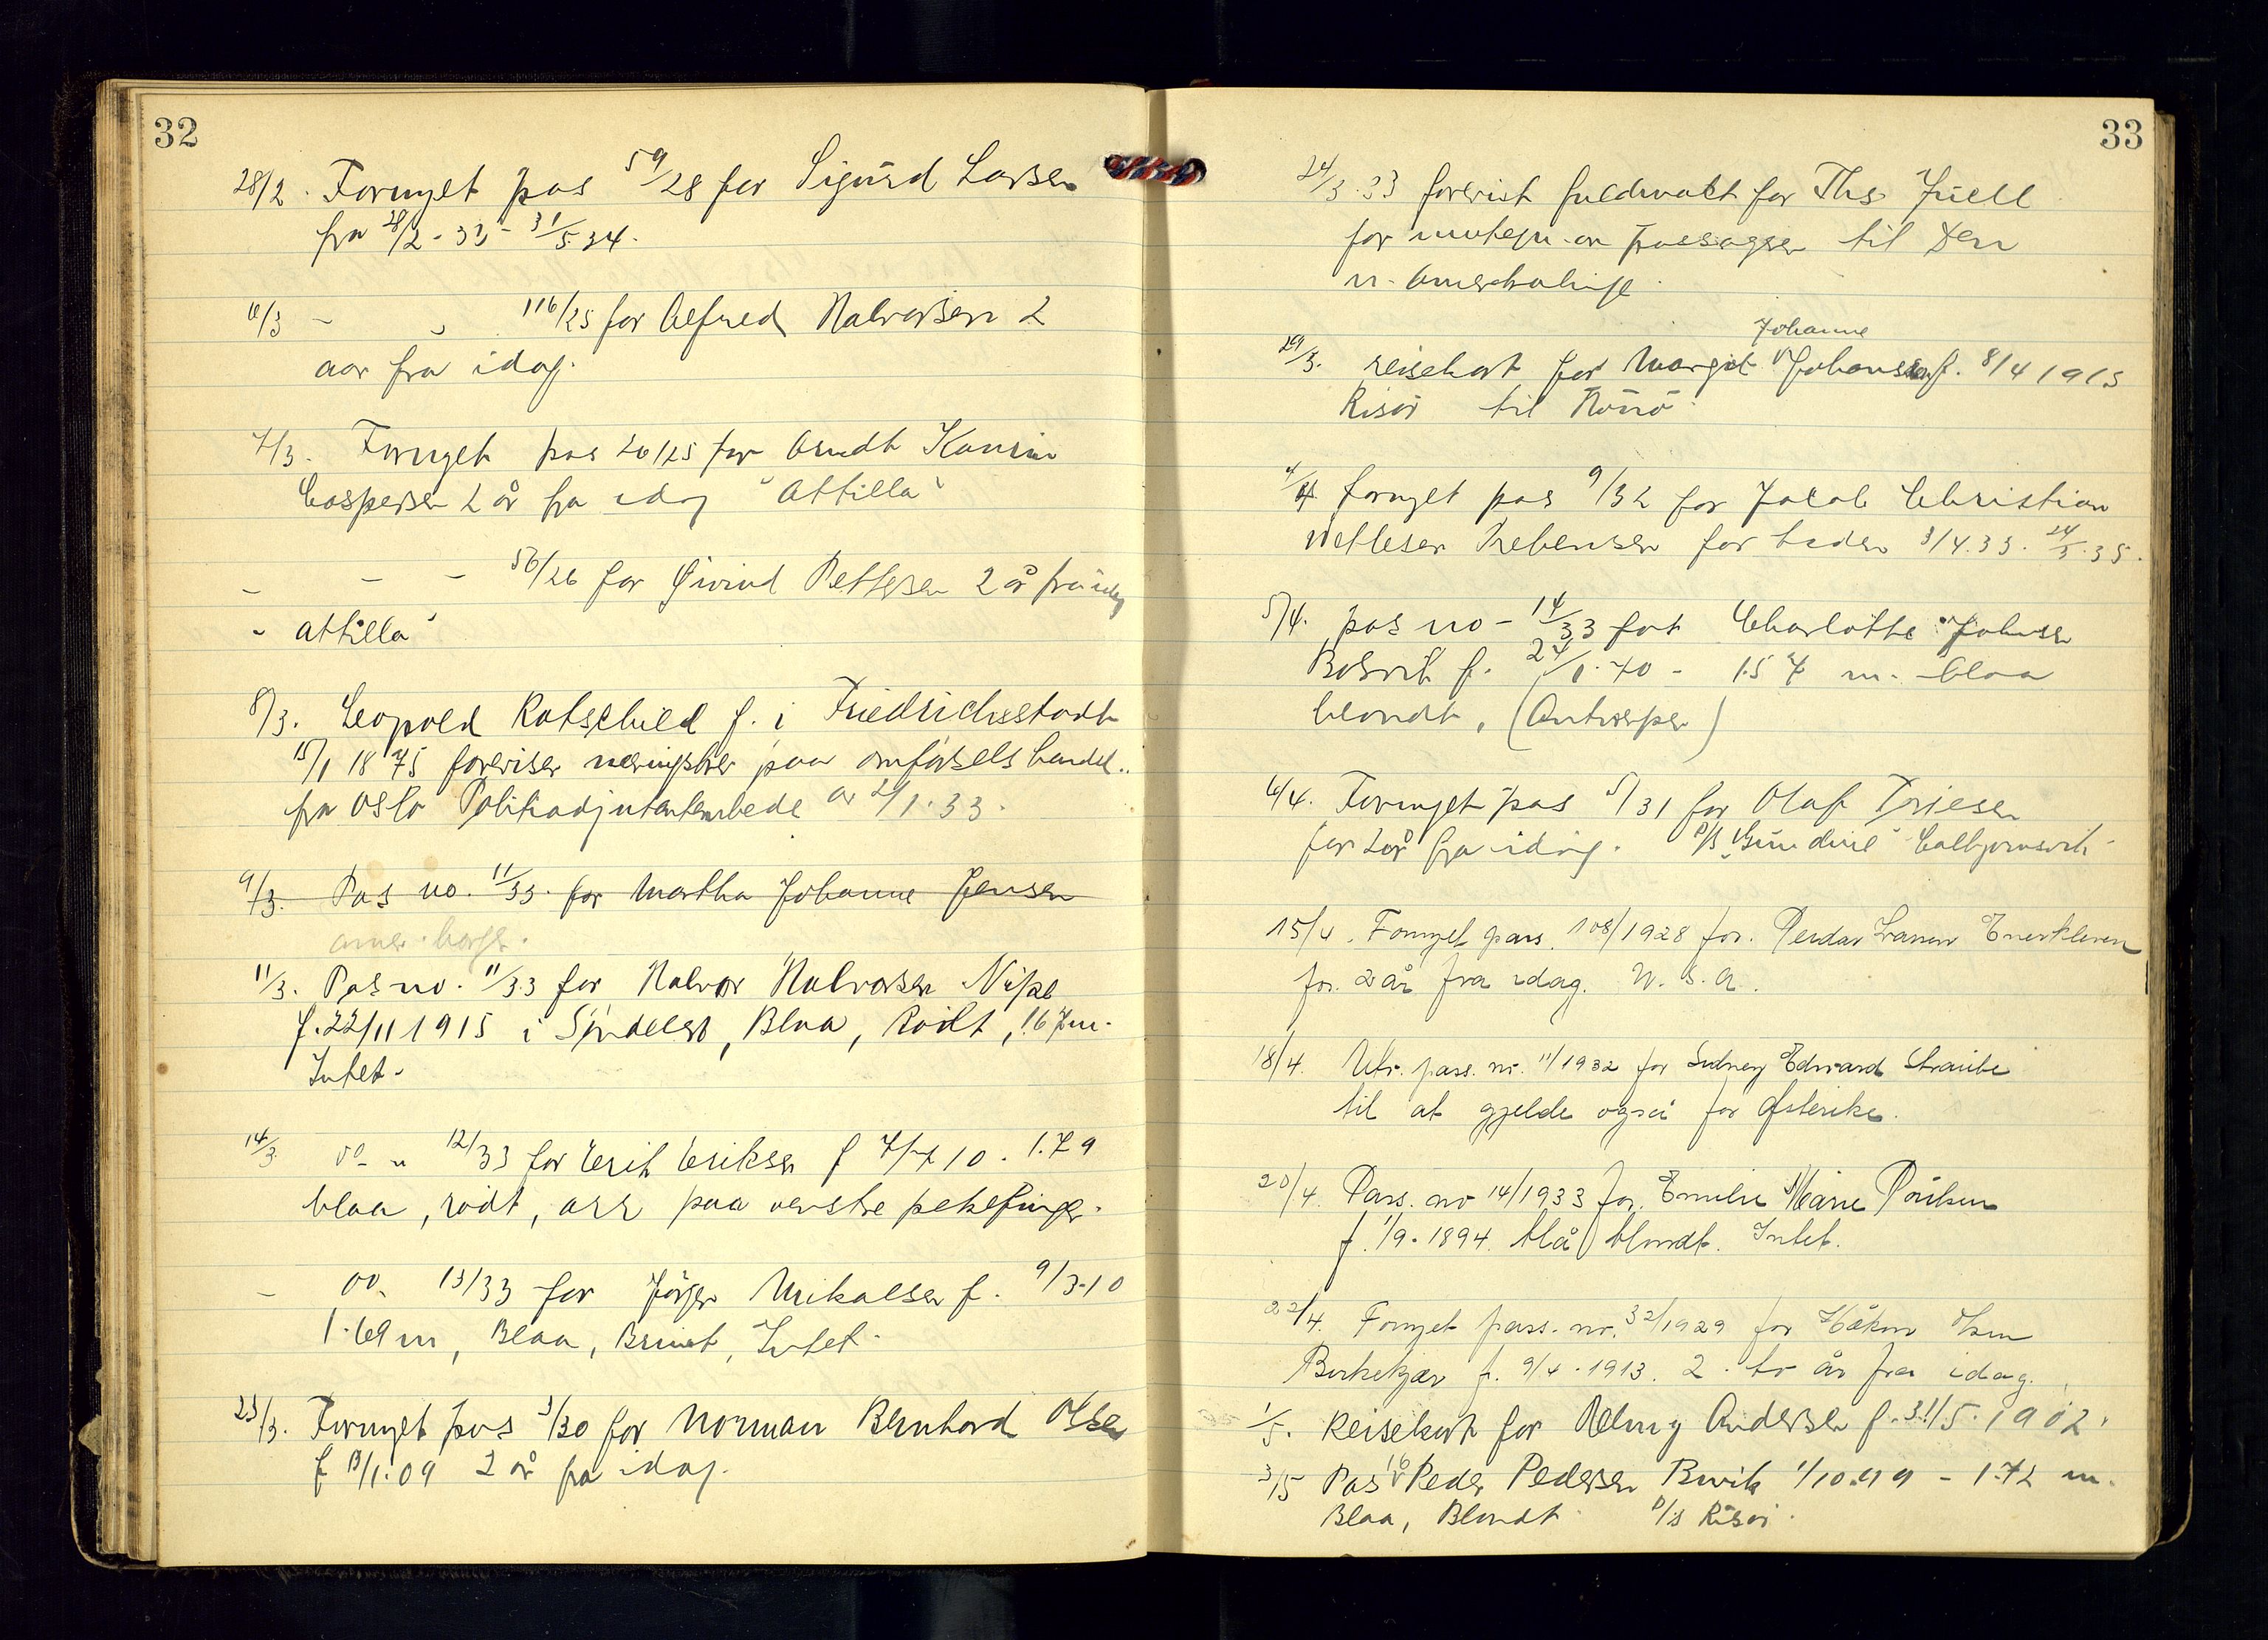 32
28/2. Fornyet pas 59/28 for Sigurd Larsen
fra 28/2-33 - 31/5.34.
6/3 - „ 116/25 for Alfred Halvorsen 2
aar fra idag.
7/3. Fornyet pas 26/25 for Arndt
Caspersen 2 år fra idag "Attilla"
- - - 56/26 for Øivind Pettersen 2 år fra idag
"Attilla"
8/3. Leopold Rotschild f. i Friedrichsstadt
15/1 1875 foreviser næringsbrev paa omførselshandel
fra Oslo Politiadjutantembede av 2/1.33.
9/3. Pas no. 11/33. for Martha Johanne Jensen
amer. borger.
11/3. Pas no. 11/33 for Halvor Halvorsen Nipe
f. 22/11 1915 i Søndeled, Blaa, Rødt, 1.67 m.
Intet.
14/3 do - " 12/33 for Erik Eriksen f 7/7 10. 1.79
blaa, rødt, arr paa venstre pekefinger.
- do. 13/33 for Jørgen Mikalsen f. 9/3.10
1.69 m, Blaa, Brunt, Intet.
23/3. Fornyet pas 3/30 for Norman Bernhard Olsen
f 13/1.09 2 år fra idag.
33
24/3.33 forevist fuldmakt for Ths. Juell
for av passager til Den
n. Amerikalinje.
Johanne
29/3. reisekort for Margit Johansen f. 8/4 1915
Risør til
4/4 fornyet pas 9/32 for Jacob Christian
Wetlesen Prebensen for tiden 3/4.33. 24/3.35.
5/4. pas no - 14/33 for Charlotte Johnsen
f. 24/1.70 - 1.57 m. blaa
blondt, (Antwerpen)
6/4. Fornyet pas 5/31 for Olaf
for 2 år fra idag. D/S "Gundine"
15/4. Fornyet pass. 108/1928 for. Peder
for. 2 år fra idag. U.S.A.
18/4. Utv. pass. nr. 11/1932 for Sidney Edward Straube
til at gjelde også for Østerike.
20/4. Pass. no 14/1933 for. Emilie Marie Poulsen
f. 1/9. 1894. blå blondt. Intet.
22/4. Fornyet pass. nr. 32/1929 for Håkon Olsen
Birkekjær f. 9/4. 1913. 2. to år fra idag.
1/5. Reisekort for Andersen f. 31/5. 1902.
3/5 Pas 16 Peder Pedersen 1/10.99 - 1.72 m.
Blaa, Blondt D/S Risør.